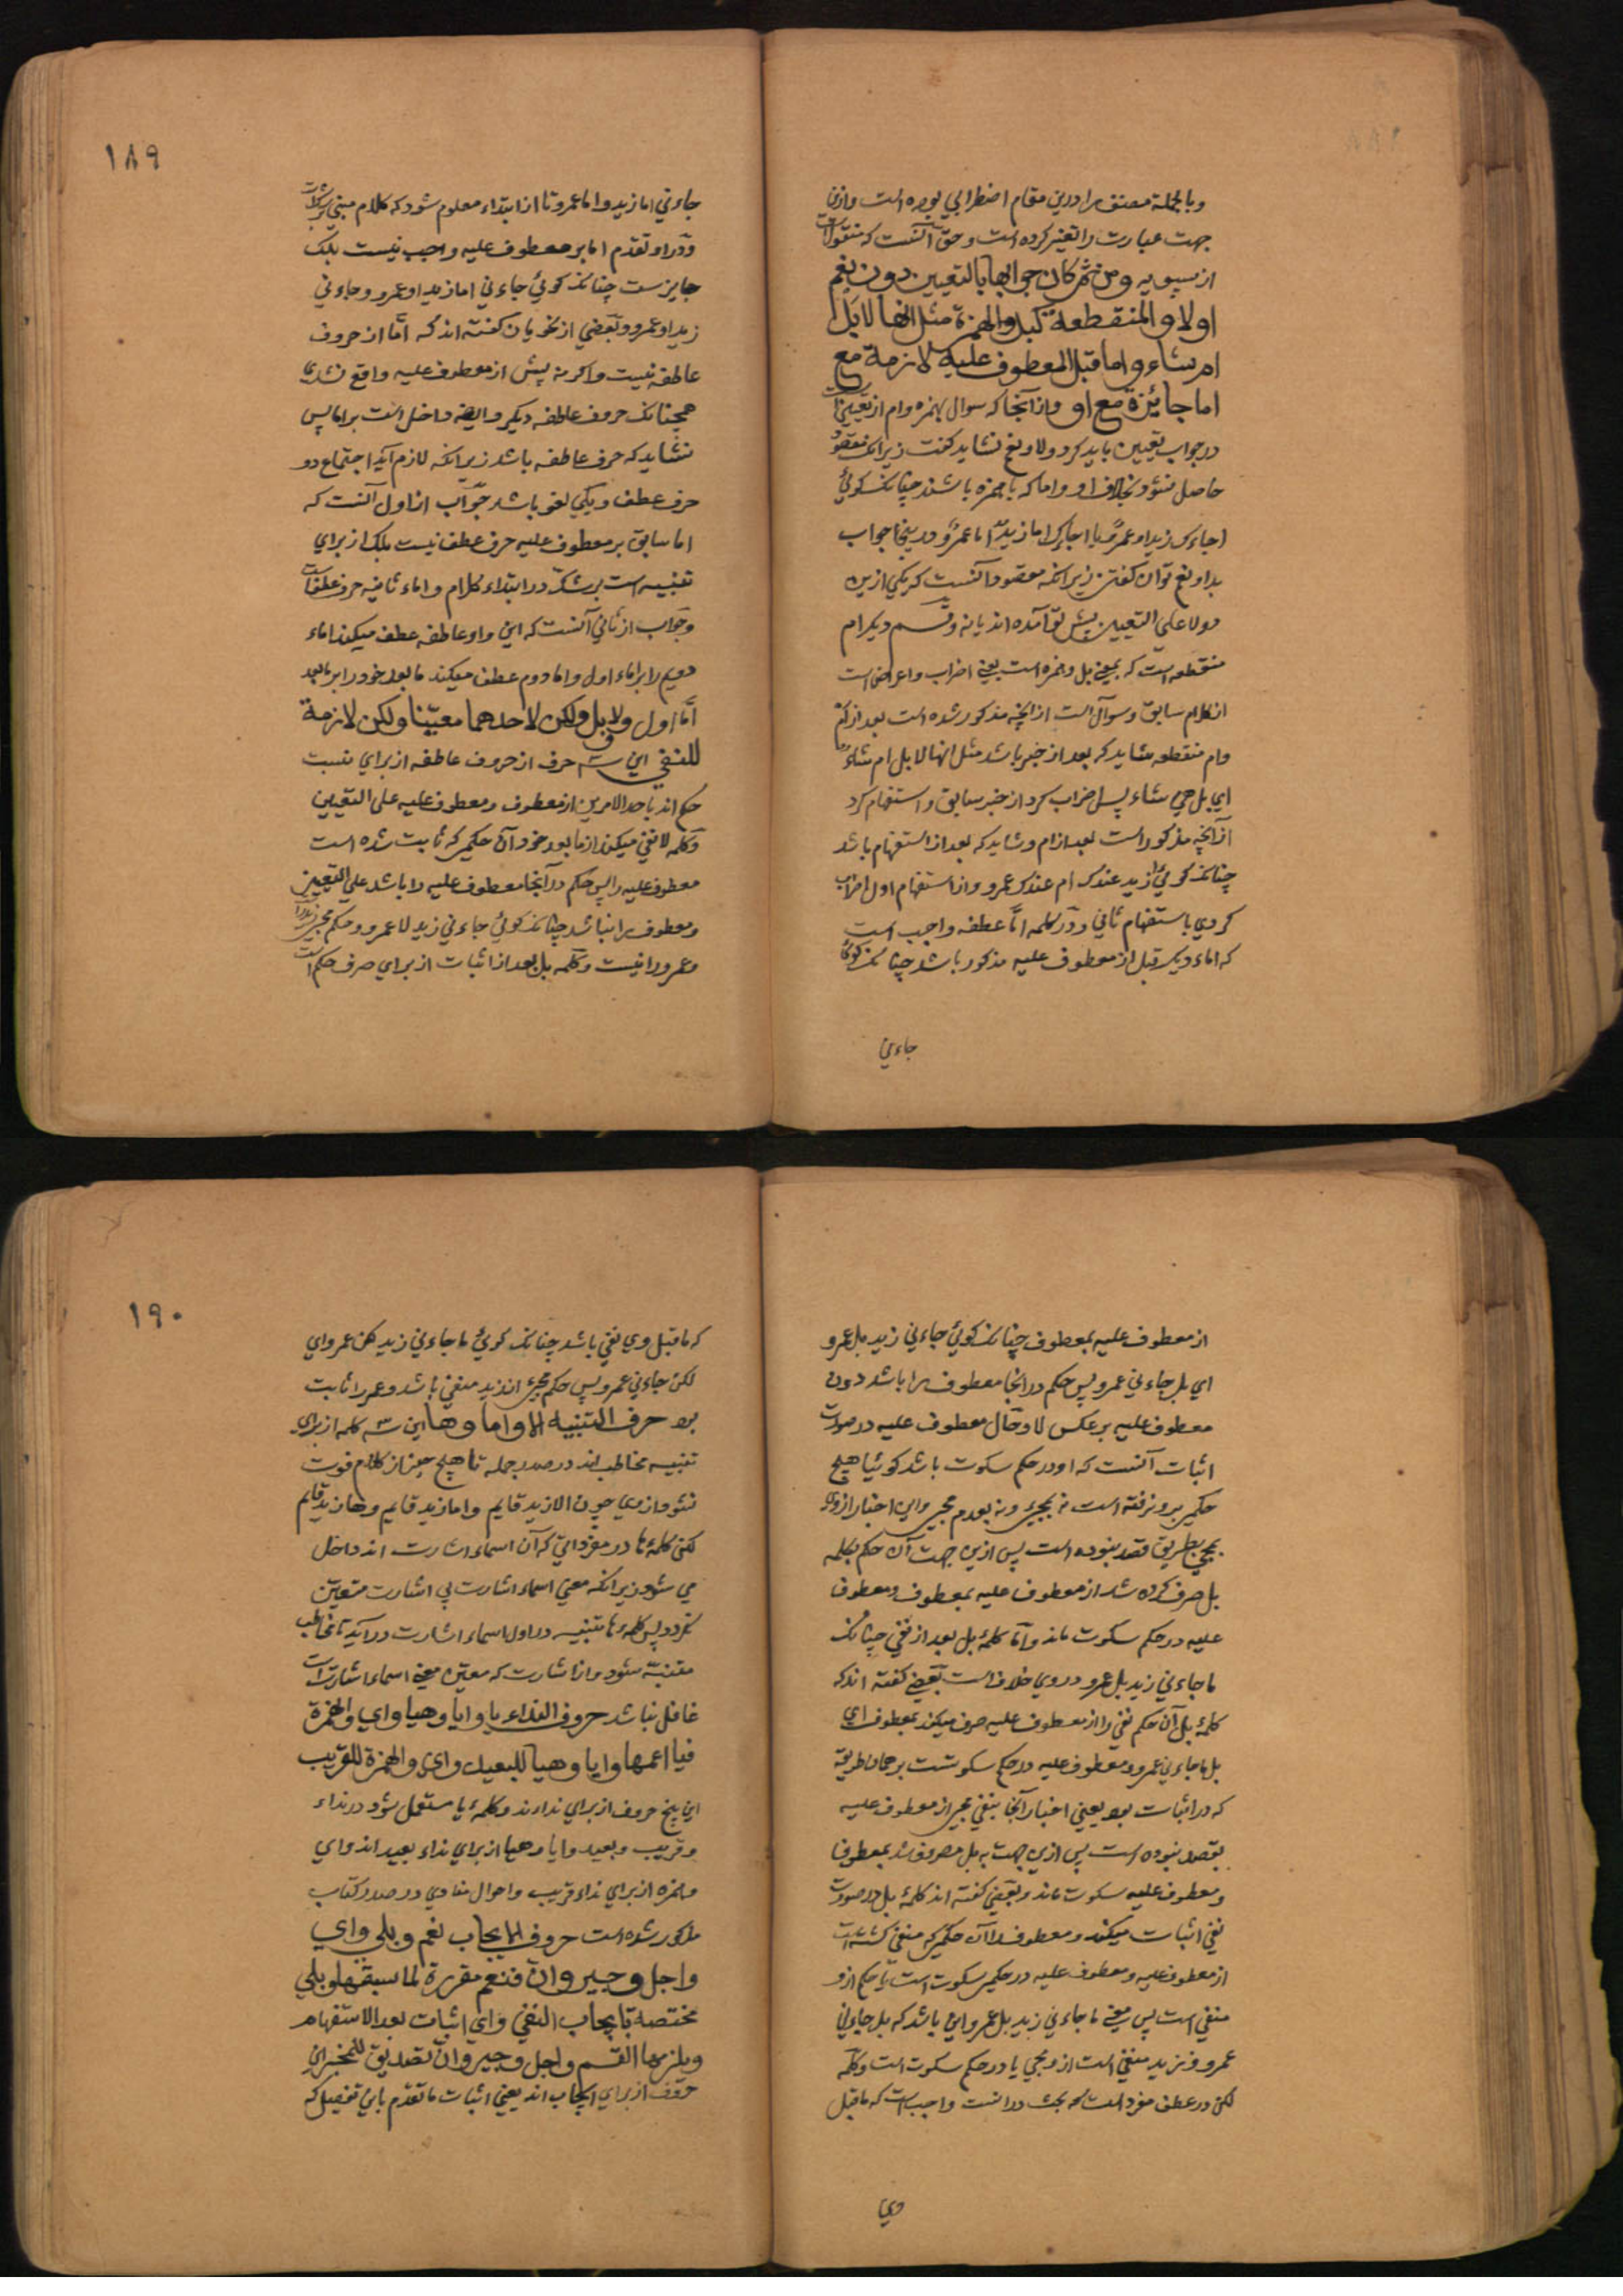 وبالجملة مصنف را درین مقام اضطرابي بوده است وازین
جهت عبارت را تغییر کرده است وحق آنست که منقولست
از سیبویه ومن ثم کان جوابها بالتعیین دون نعم
او لا والمنقطعة کبل والهمزة مثل انها لابل
ام شاء واما قبل المعطوف علیه لازمة مع
اما جائزة مع او وازآنجا که سوال بهمزه وام از تعیین است
در جواب تعیین باید کرد ولا ونعم نشاید گفت زیرانکه مقصود
حاصل نشود بخلاف او واما که با همزه باشند چنانکه کوئي
اجاءک زید او عمرو یا اجاءک اما زید اما عمرو ودرینجا جواب
بلا ونعم توان گفتن زیرانکه مقصود آنست که یکي ازین
دو لا علی التعیین پیش تو آمده اند یا نه وقسم دیکر ام
منقطعه است که بمعني بل وهمزه است یعني اضراب واعراض است
از کلام سابق وسوال است ازانچه مذکور شده است بعد از ام
وام منقطعه شاید که بعد از خبر باشد مثل انها لابل ام شاء
اي بل هي شاء پس اضراب کرد از خبر سابق واستفهام کرد
ازآنچه مذکور است بعد از ام وشاید که بعد از استفهام باشد
چنانکه کوئي ازید عندک ام عندک عمرو واز استفهام اول اضراب
کردي باستفهام ثاني ودر کلمه اما عطفه واجب است
که اماء دیکر قبل از معطوف علیه مذکور باشد چنانکه کوئي
جاءني
١٨٩
جاءني اما زید واما عمرو تا از ابتداء معلوم شود که کلام مبني بر شک است
ودر او تقدم اما بر معطوف علیه واجب نیست بلکه
جایز ست چنانکه کوئي جاءني اما زید او عمرو وجاءني
زید او عمرو وبعضي از نحویان گفته اند که اما از حروف
عاطفه نیست واکر نه پیش از معطوف علیه واقع نشدي
همچنانکه حروف عاطفه دیکر وایضا واو داخل است بر اما پس
نشاید که حرف عاطفه باشد زیرانکه لازم آید اجتماع دو
حرف عطف ویکي لغو باشد جواب از اول آنست که
اما سابق بر معطوف علیه حرف عطف نیست بلکه از براي
تنبیه است بر شک در ابتداء کلام واماء ثانیه حرف عطف است
وجواب از ثاني آنست که این واو عاطفه عطف میکند اماء
دویم را بر اماء اول واما دوم عطف میکند ما بعد خود را بر ما بعد
اما اول ولا وبل ولکن لاحدهما معینا ولکن لازمة
للنفي این سه حرف از حروف عاطفه از براي نسبت
حکم اند باحد الامرین از معطوف ومعطوف علیه علی التعیین
وکلمه لا نفي میکند از ما بعد خود آن حکمي که ثابت شده است
معطوف علیه را پس حکم درآنجا معطوف علیه را باشد علي التعیین
ومعطوف را نباشد چنانکه کوئي جاءني زید لا عمرو وحکم مجيء زید را
وعمرو را نیست وکلمه بل بعد از اثبات از براي صرف حکم است
از معطوف علیه بمعطوف چنانکه کوئي جاءني زید بل عمرو
اي بل جاءني عمرو پس حکم درآنجا معطوف را باشد دون
معطوف علیه بر عکس لا وحال معطوف علیه در صورت
اثبات آنست که او در حکم سکوت باشد کوئیا هیچ
حکمي برو نرفته است نه بمجيء ونه بعدم مجيء واین اخبار ازو
بمجيء بطریق قصد نبوده است پس ازین جهت آن حکم بکلمه
بل صرف کرده شد از معطوف علیه بمعطوف ومعطوف
علیه در حکم سکوت ماند واما کلمهٔ بل بعد از نفي چنانکه
ما جاءني زید بل عمرو دروي خلاف است بعضي گفته اند که
کلمهٔ بل آن حکم نفي را از معطوف علیه صرف میکند بمعطوف اي
بل ما جاءني عمرو ومعطوف علیه در حکم سکوتست بر همان طریقه
که در اثبات بود یعني اخبار آنجا بنفي مجيء از معطوف علیه
بقصد نبوده است پس ازین جهت به بل مصروف شد بمعطوف
ومعطوف علیه سکوت ماند وبعضي گفته اند کلمهٔ بل در صورت
نفي اثبات میکند ومعطوف را آن حکمي که منفي گشته است
از معطوف علیه ومعطوف علیه در حکم سکوت است یا حکم ازو
منفي است پس معني ما جاءني زید بل عمرو این باشد که بل جاءني
عمرو وزید منفي است ازو مجي یا در حکم سکوت است وکلمه
لکن در عطف مفرد است که بحث درانست واجب است که ماقبل
وي
١٩٠
که ما قبل وي نفي باشد چنانکه کوئي ما جاءني زید لکن عمرو اي
لکن جاءني عمرو پس حکم مجيء از زید منفي باشد وعمرو را ثابت
بود حرف التنبیه الا واما وها این سه کلمه از براي
تنبیه مخاطب اند در صدر جمله تا هیچ چیز از کلام فوت
نشود ازوي چون الا زید قایم واما زید قایم وها زید قایم
لکن کلمهٔ ها در مفرداتي که آن اسماء اشارت اند داخل
مي شود زیرانکه معني اسماء اشارت بي اشارت متعین
نکردد پس کلمهٔ ها تنبیه در اول اسماء اشارت درآید تا مخاطب
متنبه شود واز اشارت که معین معني اسماء اشارت است
غافل نباشد حروف النداء یا وایا وهیا واي والهمزة
فیا اعمها وایا وهیا للبعید واي والهمزة للقریب
این پنج حروف از براي نداءند وکلمهٔ یا مستعمل شود در نداء
وقریب وبعید وایا وهیا از براي نداء بعید اند واي
وهمزه از براي نداء قریب واحوال منادي در صدر کتاب
مذکور شده است حروف الایجاب نعم وبلی واي
واجل وجیر وان فنعم مقررة لما سبقها وبلی
مختصة بایجاب النفي واي اثبات بعد الاستفهام
ویلزمها القسم واجل وجیر وان تصدیق للمخبر این
حروف از براي ایجاب اند یعني اثبات ما تقدم باین تفصیل که